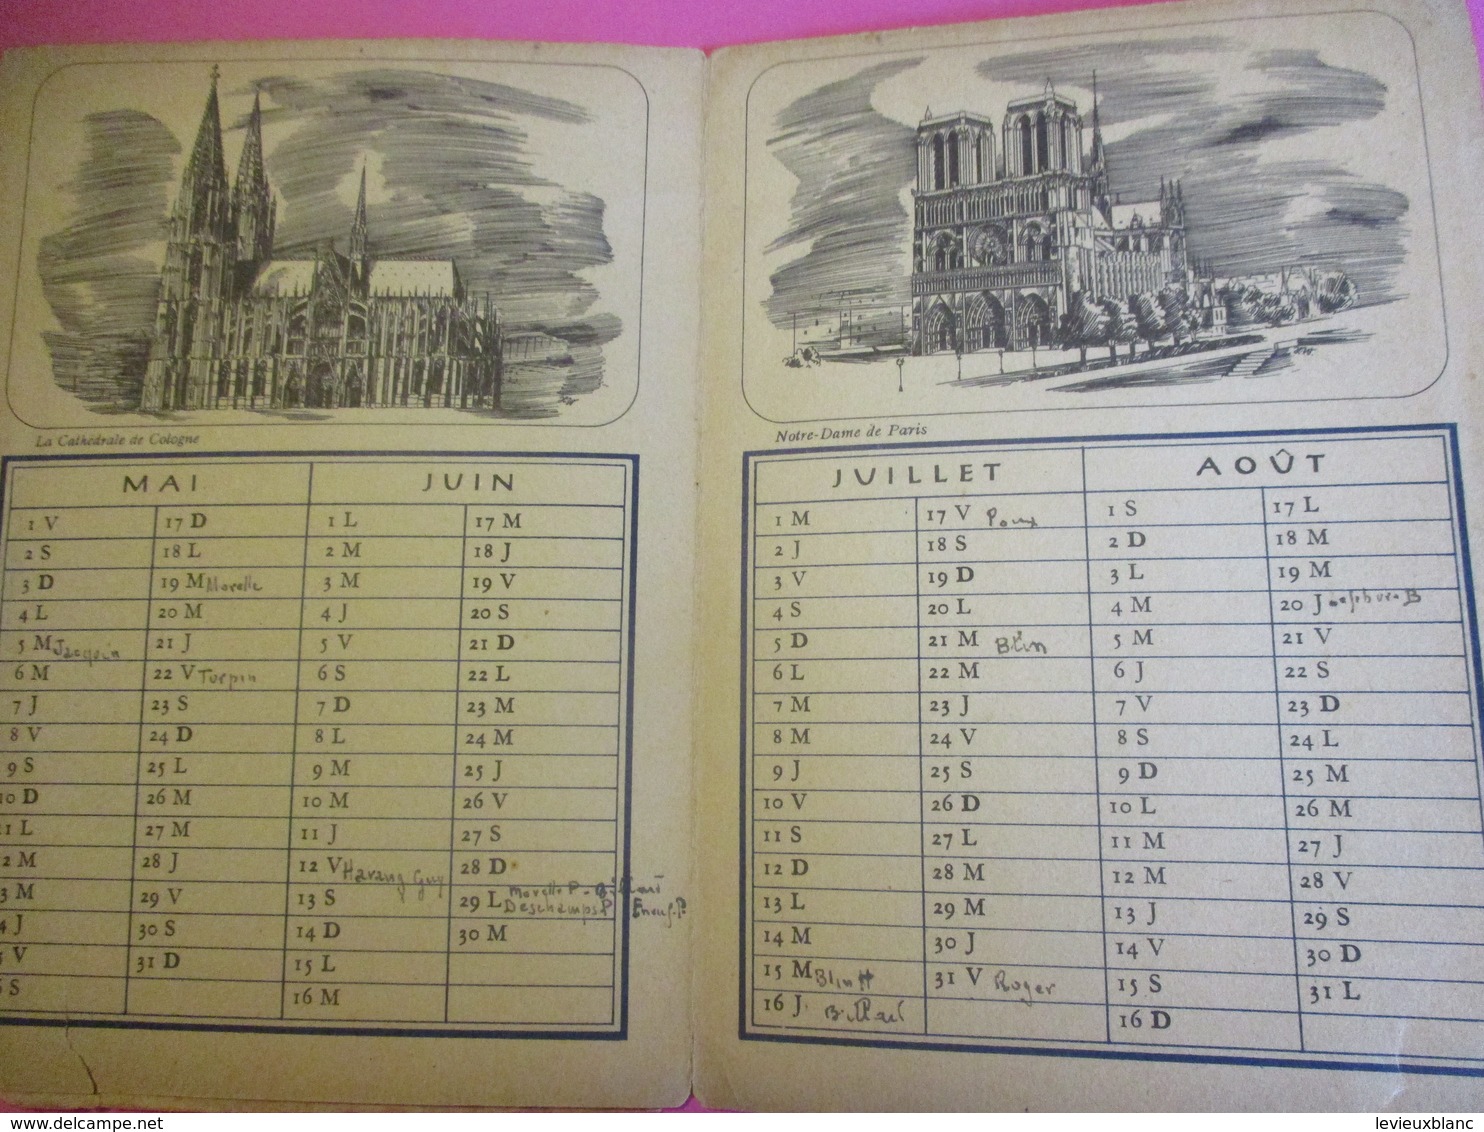 La Cathédrale de Cologne
MAI
1 V
2 S
3 D
4 L
5 M Jacquin
6 M
7 J
8 V
9 S
10 D
1 L
2 M
3 M
4 J
V
S
17 D
18 L
19 M Morelle
20 M
21 J
22 V Turpin
23 S
24 D
25 L
26 M
27 M
28 J
29 V
30 S
31 D
JUIN
1 L
2 M
3 M
4 J
5 V
6 S
7 D
8 L
9 M
10 M
11 J
12 V Harang Guy
13 S
14 D
15 L
16 M
17 M
18 J
19 V
20 S
21 D
22 L
23 M
24 M
25 J
26 V
27 S
28 D
29 L Morelle P - Billard
Deschamps P
30 M
Notre-Dame de Paris
JUILLET
1 M
2 J
3 V
4 S
5 D
6 L
7 M
8 M
9 J
10 V
11 S
12 D
13 L
14 M
15 M Blin H
16 J Billard
17 V Poux
18 S
19 D
20 L
21 M Blin
22 M
23 J
24 V
25 S
26 D
27 L
28 M
29 M
30 J
31 V Roger
AOÛT
1 S
2 D
3 L
4 M
5 M
6 J
7 V
8 S
9 D
10 L
11 M
12 M
13 J
14 V
15 S
16 D
17 L
18 M
19 M
20 J Lefebvre B
21 V
22 S
23 D
24 L
25 M
26 M
27 J
28 V
29 S
30 D
31 L
https://www.delcampe.net
levieuxblanc